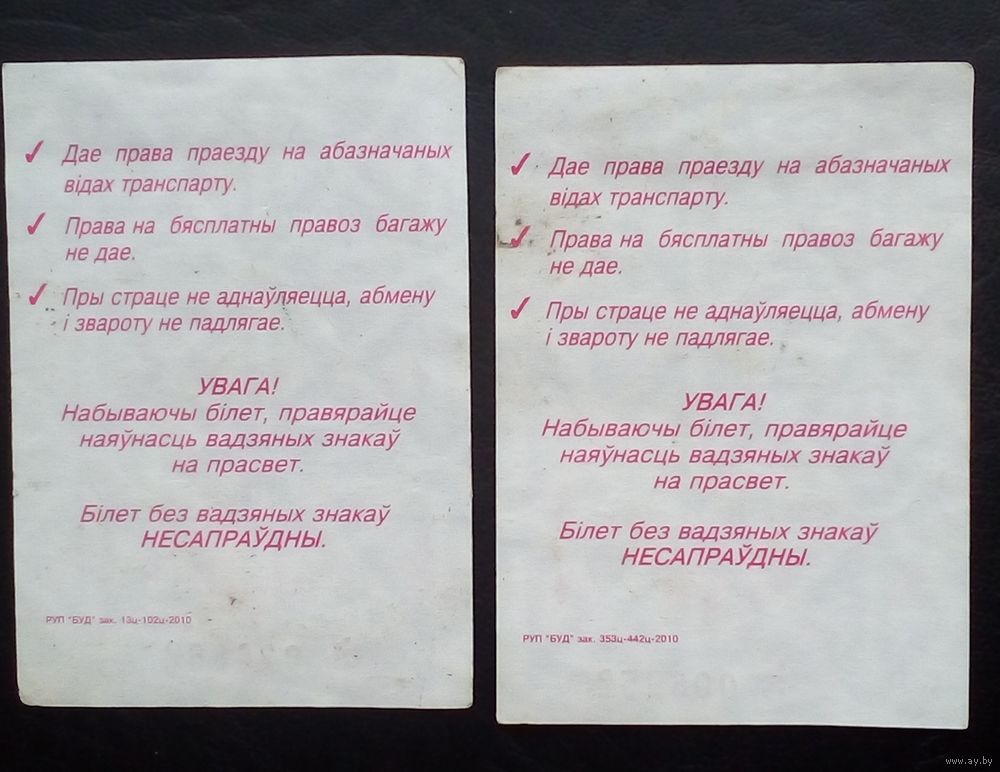 ✓ Дае права праезду на абазначаных
відах транспарту.
✓ Права на бясплатны правоз багажу
не дае.
✓ Пры страце не аднаўляецца, абмену
і звароту не падлягае.
УВАГА!
Набываючы білет, правярайце
наяўнасць вадзяных знакаў
на прасвет.
Білет без вадзяных знакаў
НЕСАПРАЎДНЫ.
РУП "БУД" зак. 13ц-102ц-2010
✓ Дае права праезду на абазначаных
відах транспарту.
✓ Права на бясплатны правоз багажу
не дае.
✓ Пры страце не аднаўляецца, абмену
і звароту не падлягае.
УВАГА!
Набываючы білет, правярайце
наяўнасць вадзяных знакаў
на прасвет.
Білет без вадзяных знакаў
НЕСАПРАЎДНЫ.
РУП "БУД" зак. 353ц-442ц-2010
www.ay.by